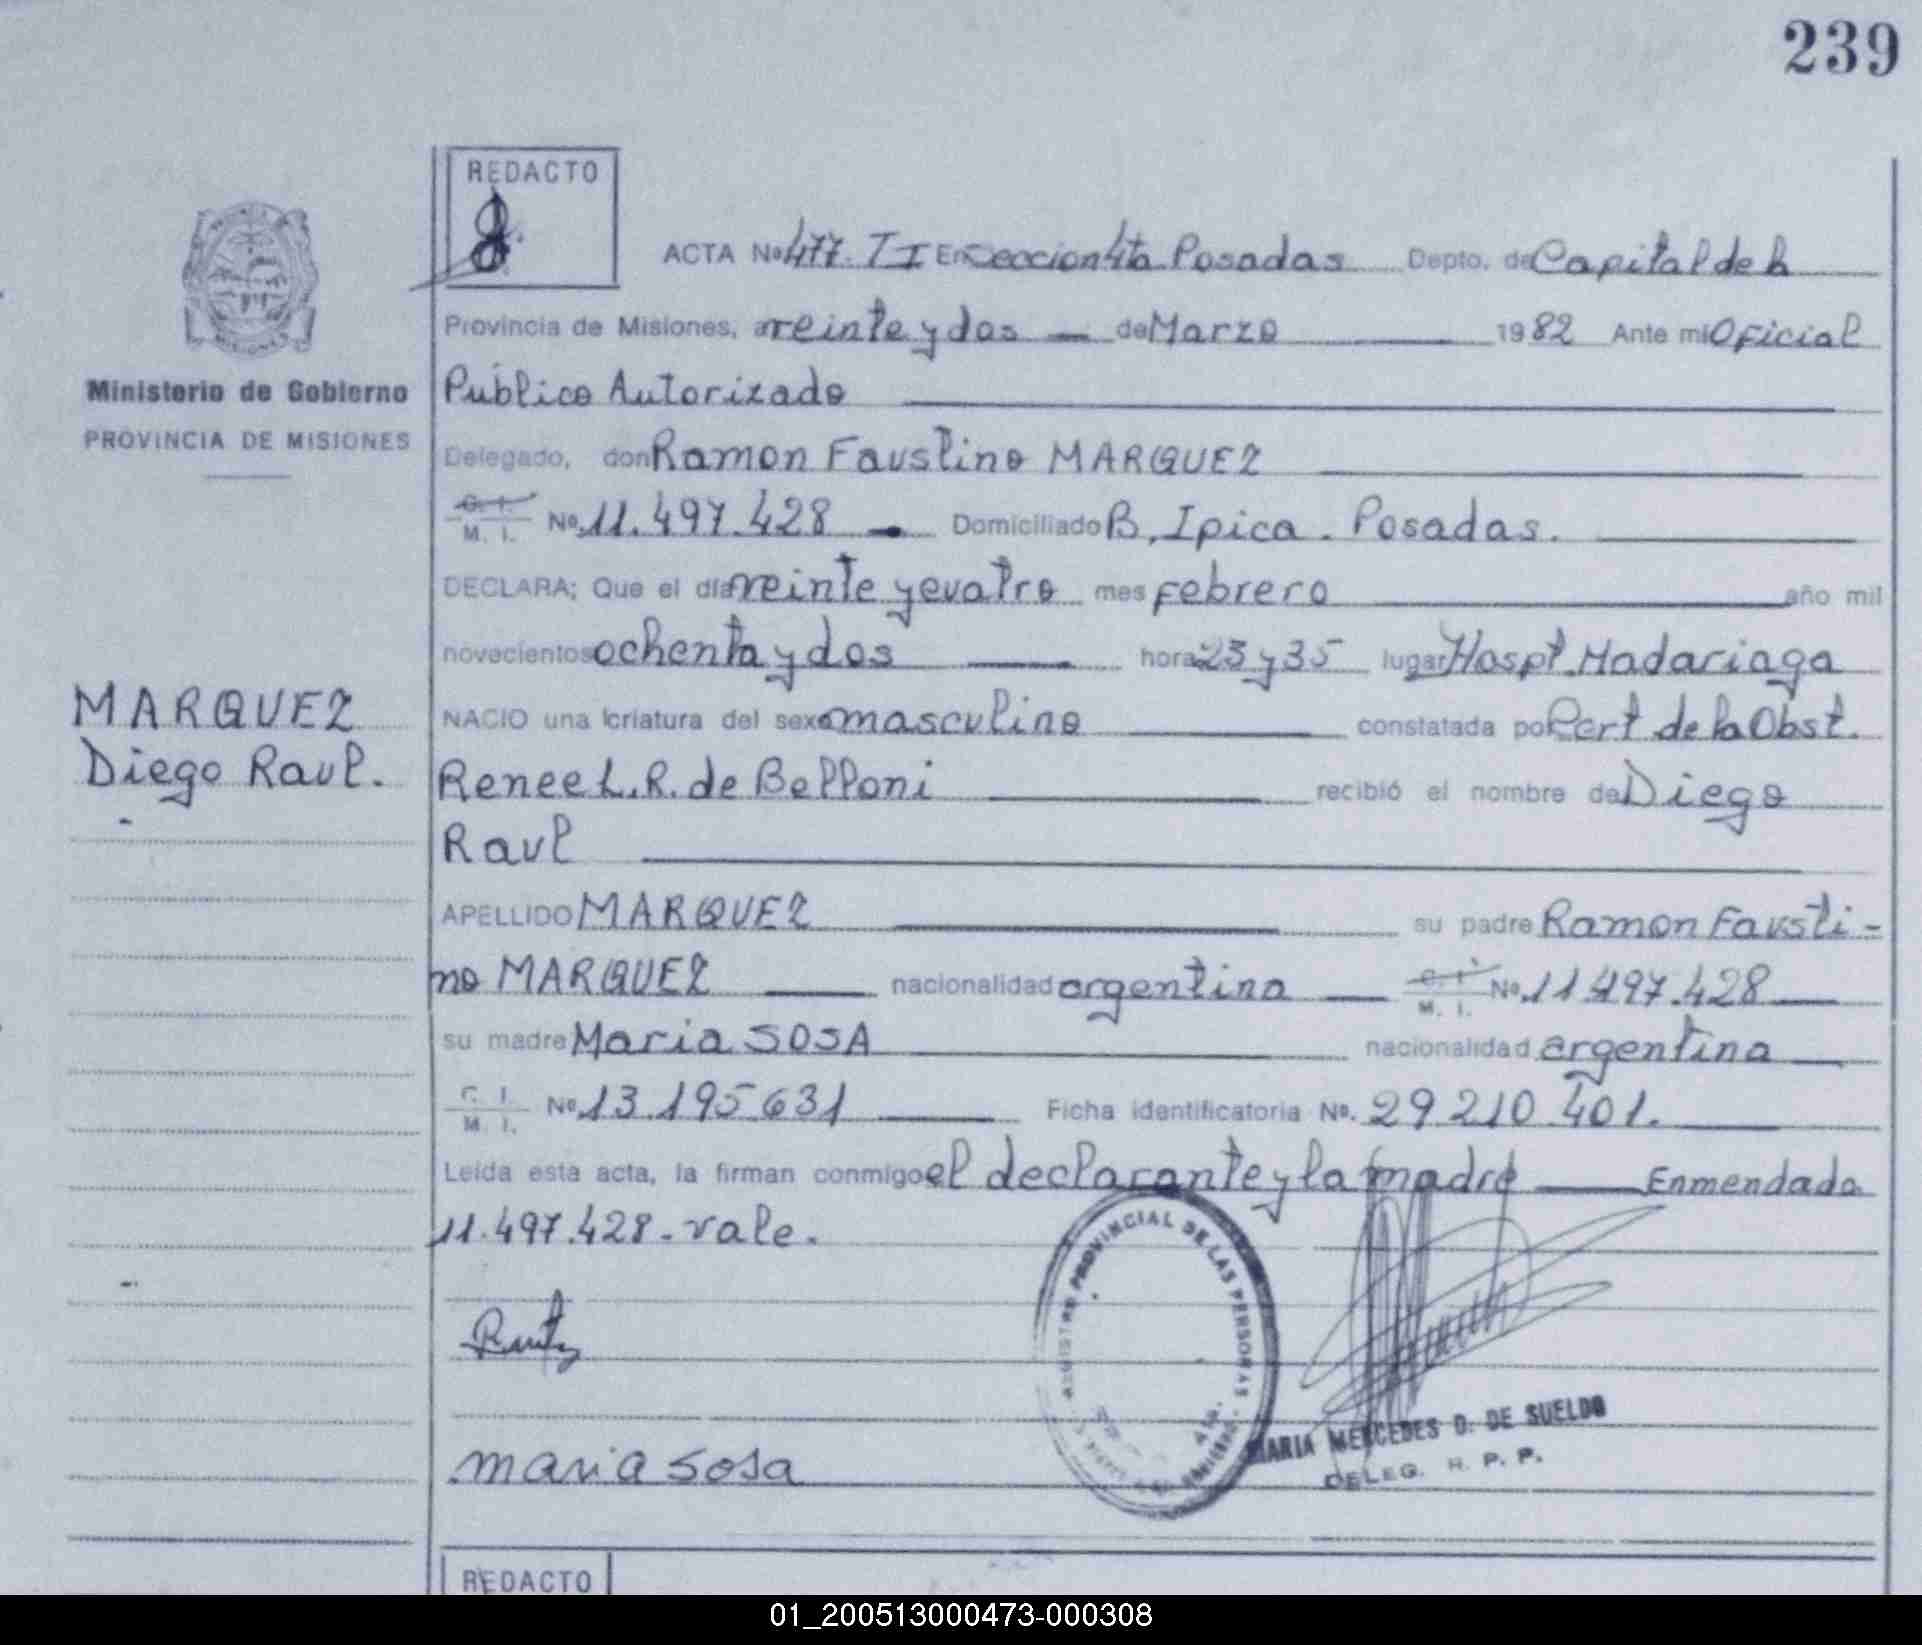 239
REDACTO
ACTA Nº 477. T I En Seccion 4ta Posadas Depto. de Capital de la
Provincia de Misiones, a veinte y dos de Marzo 1982 Ante mi Oficial
Ministerio de Gobierno
Público Autorizado
PROVINCIA DE MISIONES
Delegado, don Ramon Faustino MARQUEZ
C. I.
M. I. Nº 11.497.428 Domiciliado B. Ipica. Posadas.
DECLARA; Que el día veinte y cuatro mes febrero año mil
novecientos ochenta y dos hora 23 y 35 lugar Hospt. Madariaga
MARQUEZ
NACIO una criatura del sexo masculino constatada por Cert de la Obst.
Diego Raul.
Renee L. R. de Belloni recibió el nombre de Diego
Raul
APELLIDO MARQUEZ su padre Ramon Fausti-
no MARQUEZ nacionalidad argentina C. I.
M. I. Nº 11.497.428
su madre Maria SOSA nacionalidad argentina
C. I.
M. I. Nº 13.195.631 Ficha identificatoria Nº. 29.210.401.
Leída esta acta, la firman conmigo el declarante y la madre Enmendado
11.497.428. vale.
REGISTRO PROVINCIAL DE LAS PERSONAS
maria sosa
MARIA MERCEDES O. DE SUELDO
DELEG. R. P. P.
REDACTO
01_200513000473-000308